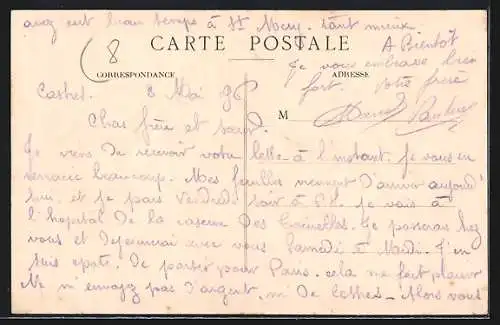 avez eut beau temps à St Mery. tant mieux
8
CARTE POSTALE
A Bientôt
CORRESPONDANCE
ADRESSE
Je vous embrasse bien
fort. Votre frère
M
Castres. 8 Mai
Chers frère et soeur.
Je viens de recevoir votre lettre à l'instant. Je vous en
remercie beaucoup. Mes feuilles viennent d'arriver aujourd'
hui. et je pars Vendredi soir à je vais à
l'hopital De la caserne Des Je passerai chez
vous et Dejeunerai avec vous Samedi à Midi. J'en
suis epaté. De partir pour Paris. cela me fait plaisir
Ne m'envoyez pas D'argent, ni De lettres - Alors vous